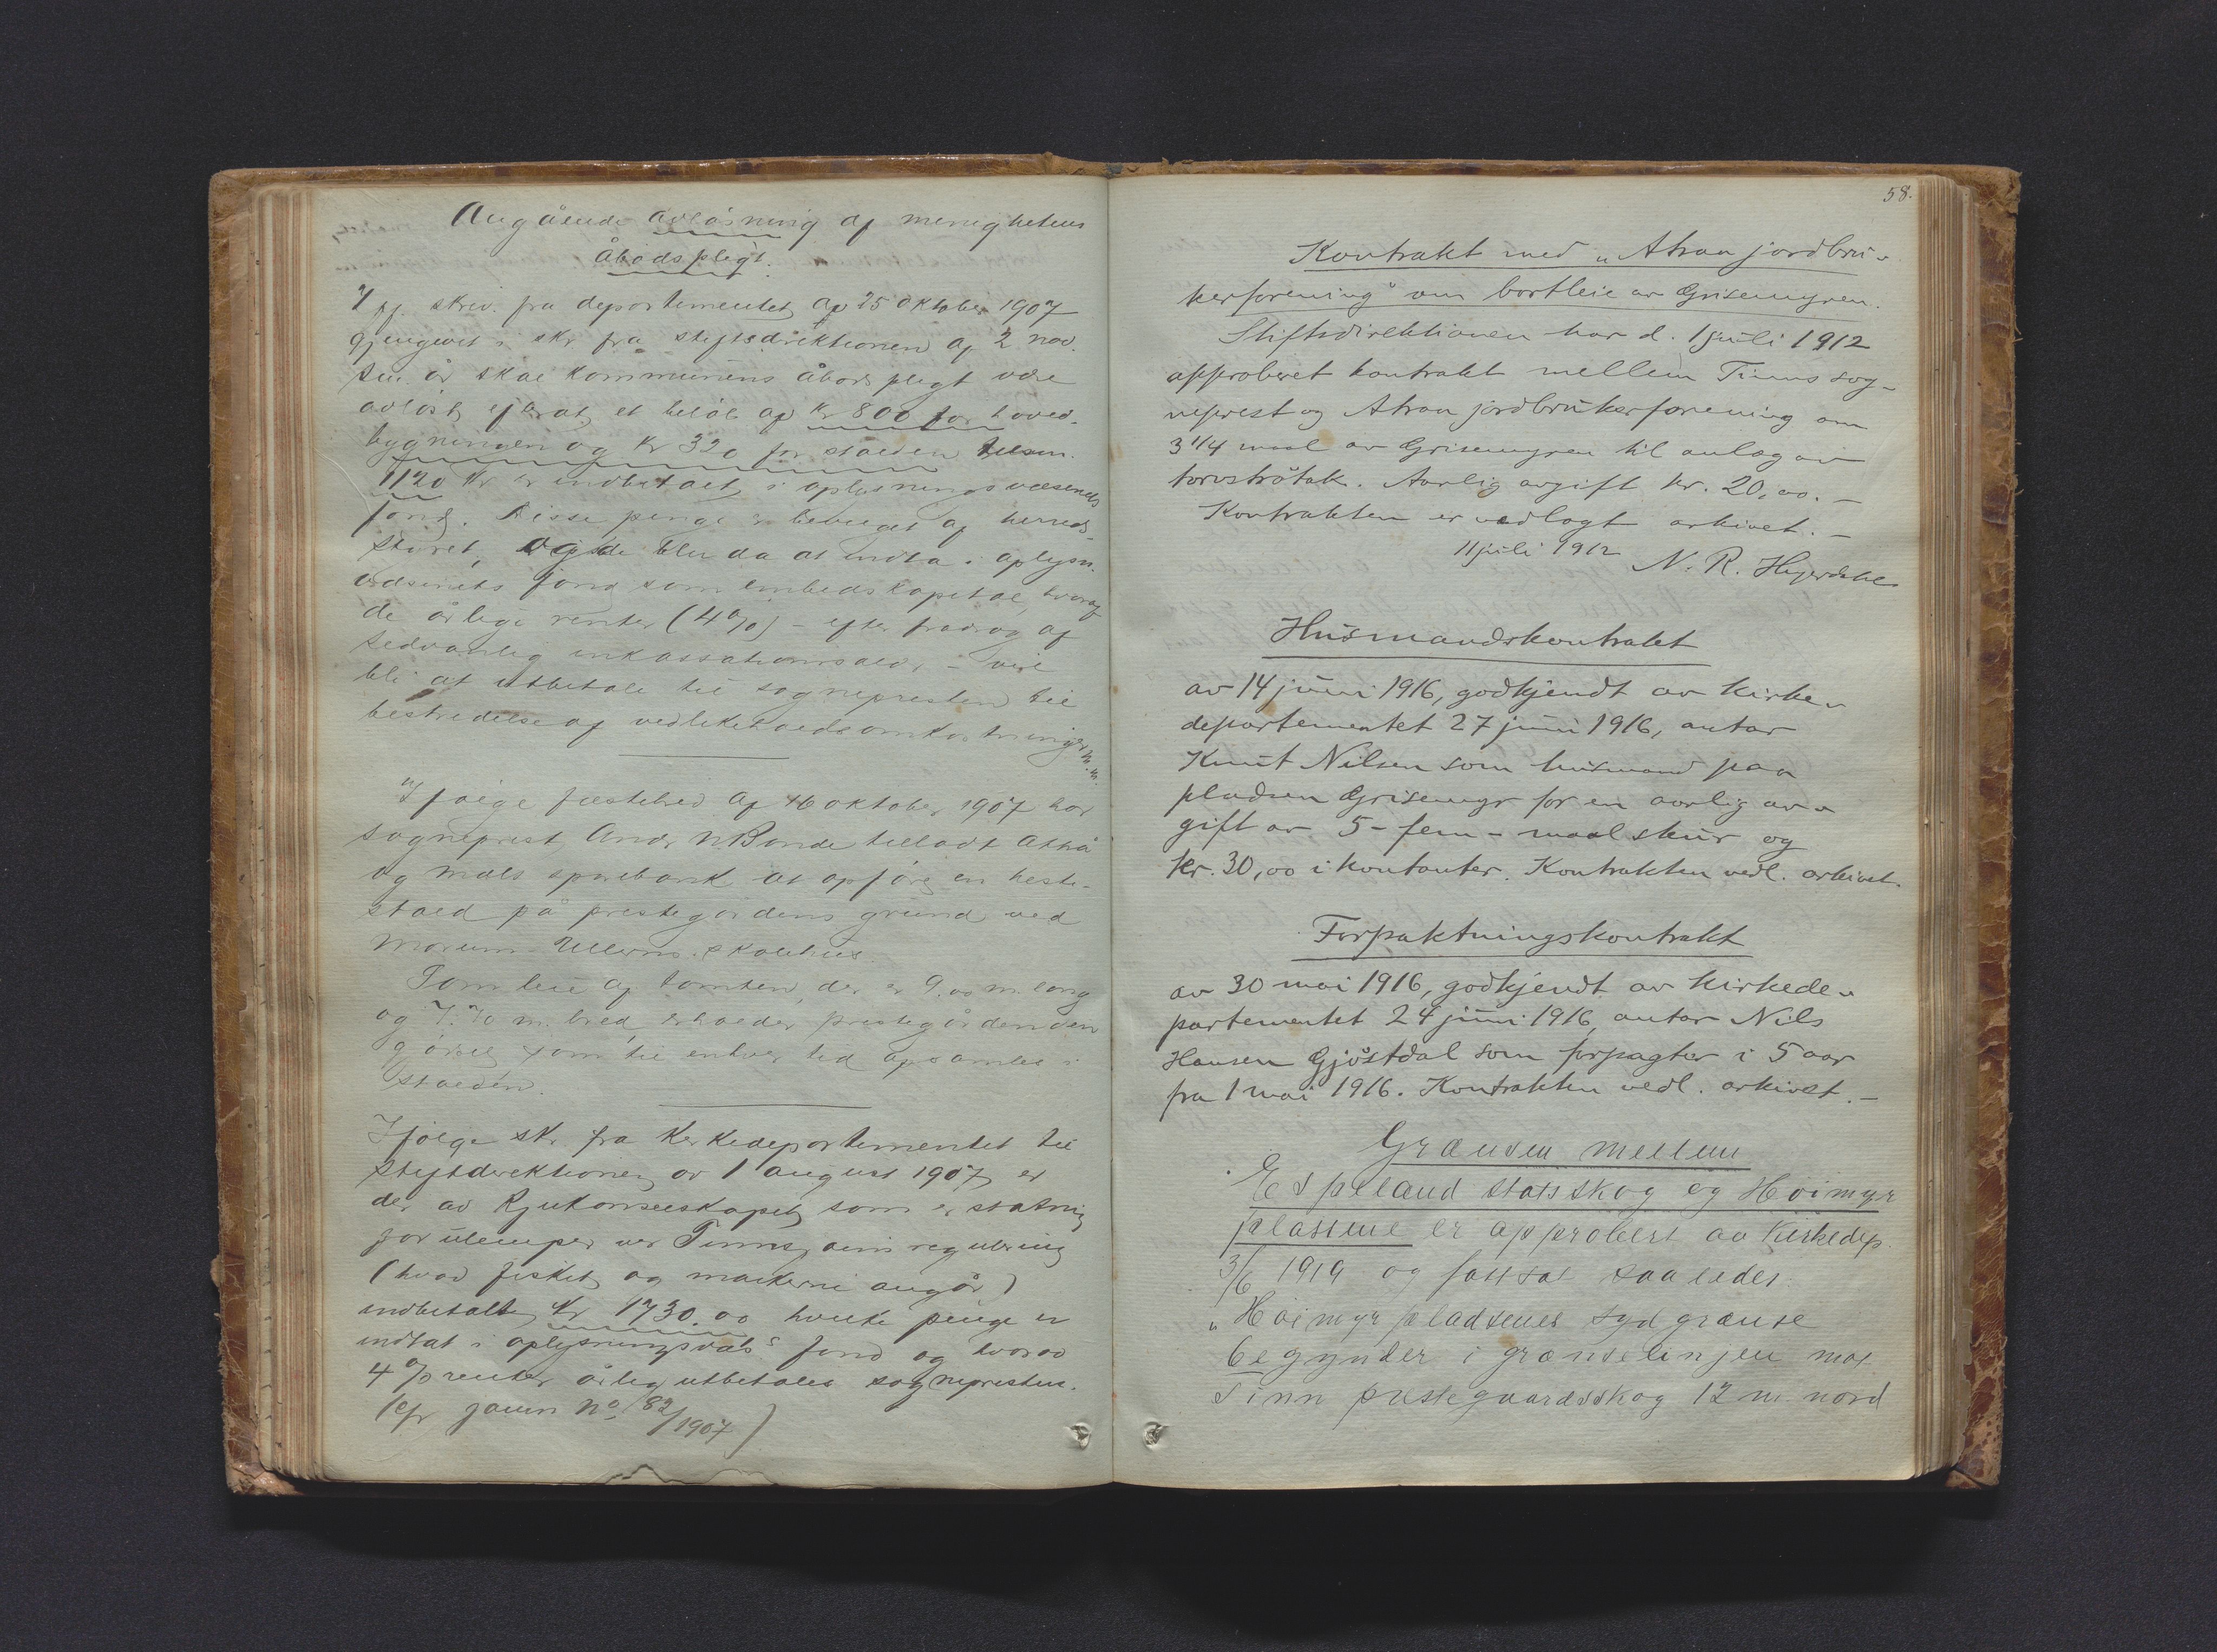 Angående avløsning af menighetens
åbodsplegt.
Ifg. skriv. fra departementet af 25 oktober 1907
gjengivet i skr fra stiftsdirektionen af 2 nov.
s. år skal kommunens åbodsplegt være
avløst efterat et beløb af kr 800 for hoved-
bygningen og kr 320 for stalden tilsm.
1120 kr er indbetalt i oplysningsvæsenets
fond. Disse penge er bevilget af herreds-
styret, og de blev da at indta i oplysn.
væsenets fond som embedskapital, hvoraf
de årlige renter (4%) – efter fradrag af
sedvanlig inkassationsalær – vil
bli at utbetale til sognepresten til
bestridelse af vedlikeholdsomkostninger m.m.
Ifølge festebrev af 16 oktober 1907 har
sogneprest Andr N Bonde tilladt Atrå
og Mæls sparebank at opføre en heste-
stald på prestegårdens grund ved
Marum-Ullerns skolehus.
Som leie af tomten, der er 9.00 m. lang
og 7.70 m. bred, erholder prestegården den
gjødsel som til enhver tid opsamles i
stalden.
Ifølge skr. fra Kirkedepartementet til
Stiftdirektionen av 1 august 1907 er
der av Rjukanselskapet som erstatning
for ulemper ved Tinnsjøens regulering
(hvad fisket og markerne angår)
indbetalt kr 1730.00 hvilke penge er
indtat i oplysningsvæs's fond og hvorav
4% renter årlig utbetales sognepresten.
(cfr journ No 82/1907)
58.
Kontrakt med „Atraa jordbru-
kerforening" om bortleie av Grisemyren.
Stiftsdirektionen har d. 1 juli 1912
approberet kontrakt mellem Tinns sog-
neprest og Atraa jordbrukerforening om
3 1/4 maal av Grisemyren til anlæg av
torvstrøtak. Aarlig avgift kr. 20,00. –
Kontrakten er vedlagt arkivet. –
11 juli 1912 N. R. Hejerdahl
Husmandskontrakt
av 14 juni 1916, godkjendt av Kirke-
departementet 27 juni 1916, antar
Knut Nilsen som husmand paa
pladsen Grisemyr for en aarlig av-
gift av 5 – fem – maal skur og
kr. 30,00 i kontanter. Kontrakten vedl. arkivet.
Forpaktningskontrakt
av 30 mai 1916, godkjendt av Kirkede-
partementet 24 juni 1916, antar Nils
Hansen Gjøstdal som forpagter i 5 aar
fra 1 mai 1916. Kontrakten vedl. arkivet. –
Grænsen mellem
Espeland statsskog og Høimyr
plassene er approbert av Kirkedep.
3/6 1919 og fastsat saaledes:
„Høimyrpladsenes sydgrænse
begynder i grænselinjen mot
Tinn prestegaardsskog 12 m. nord